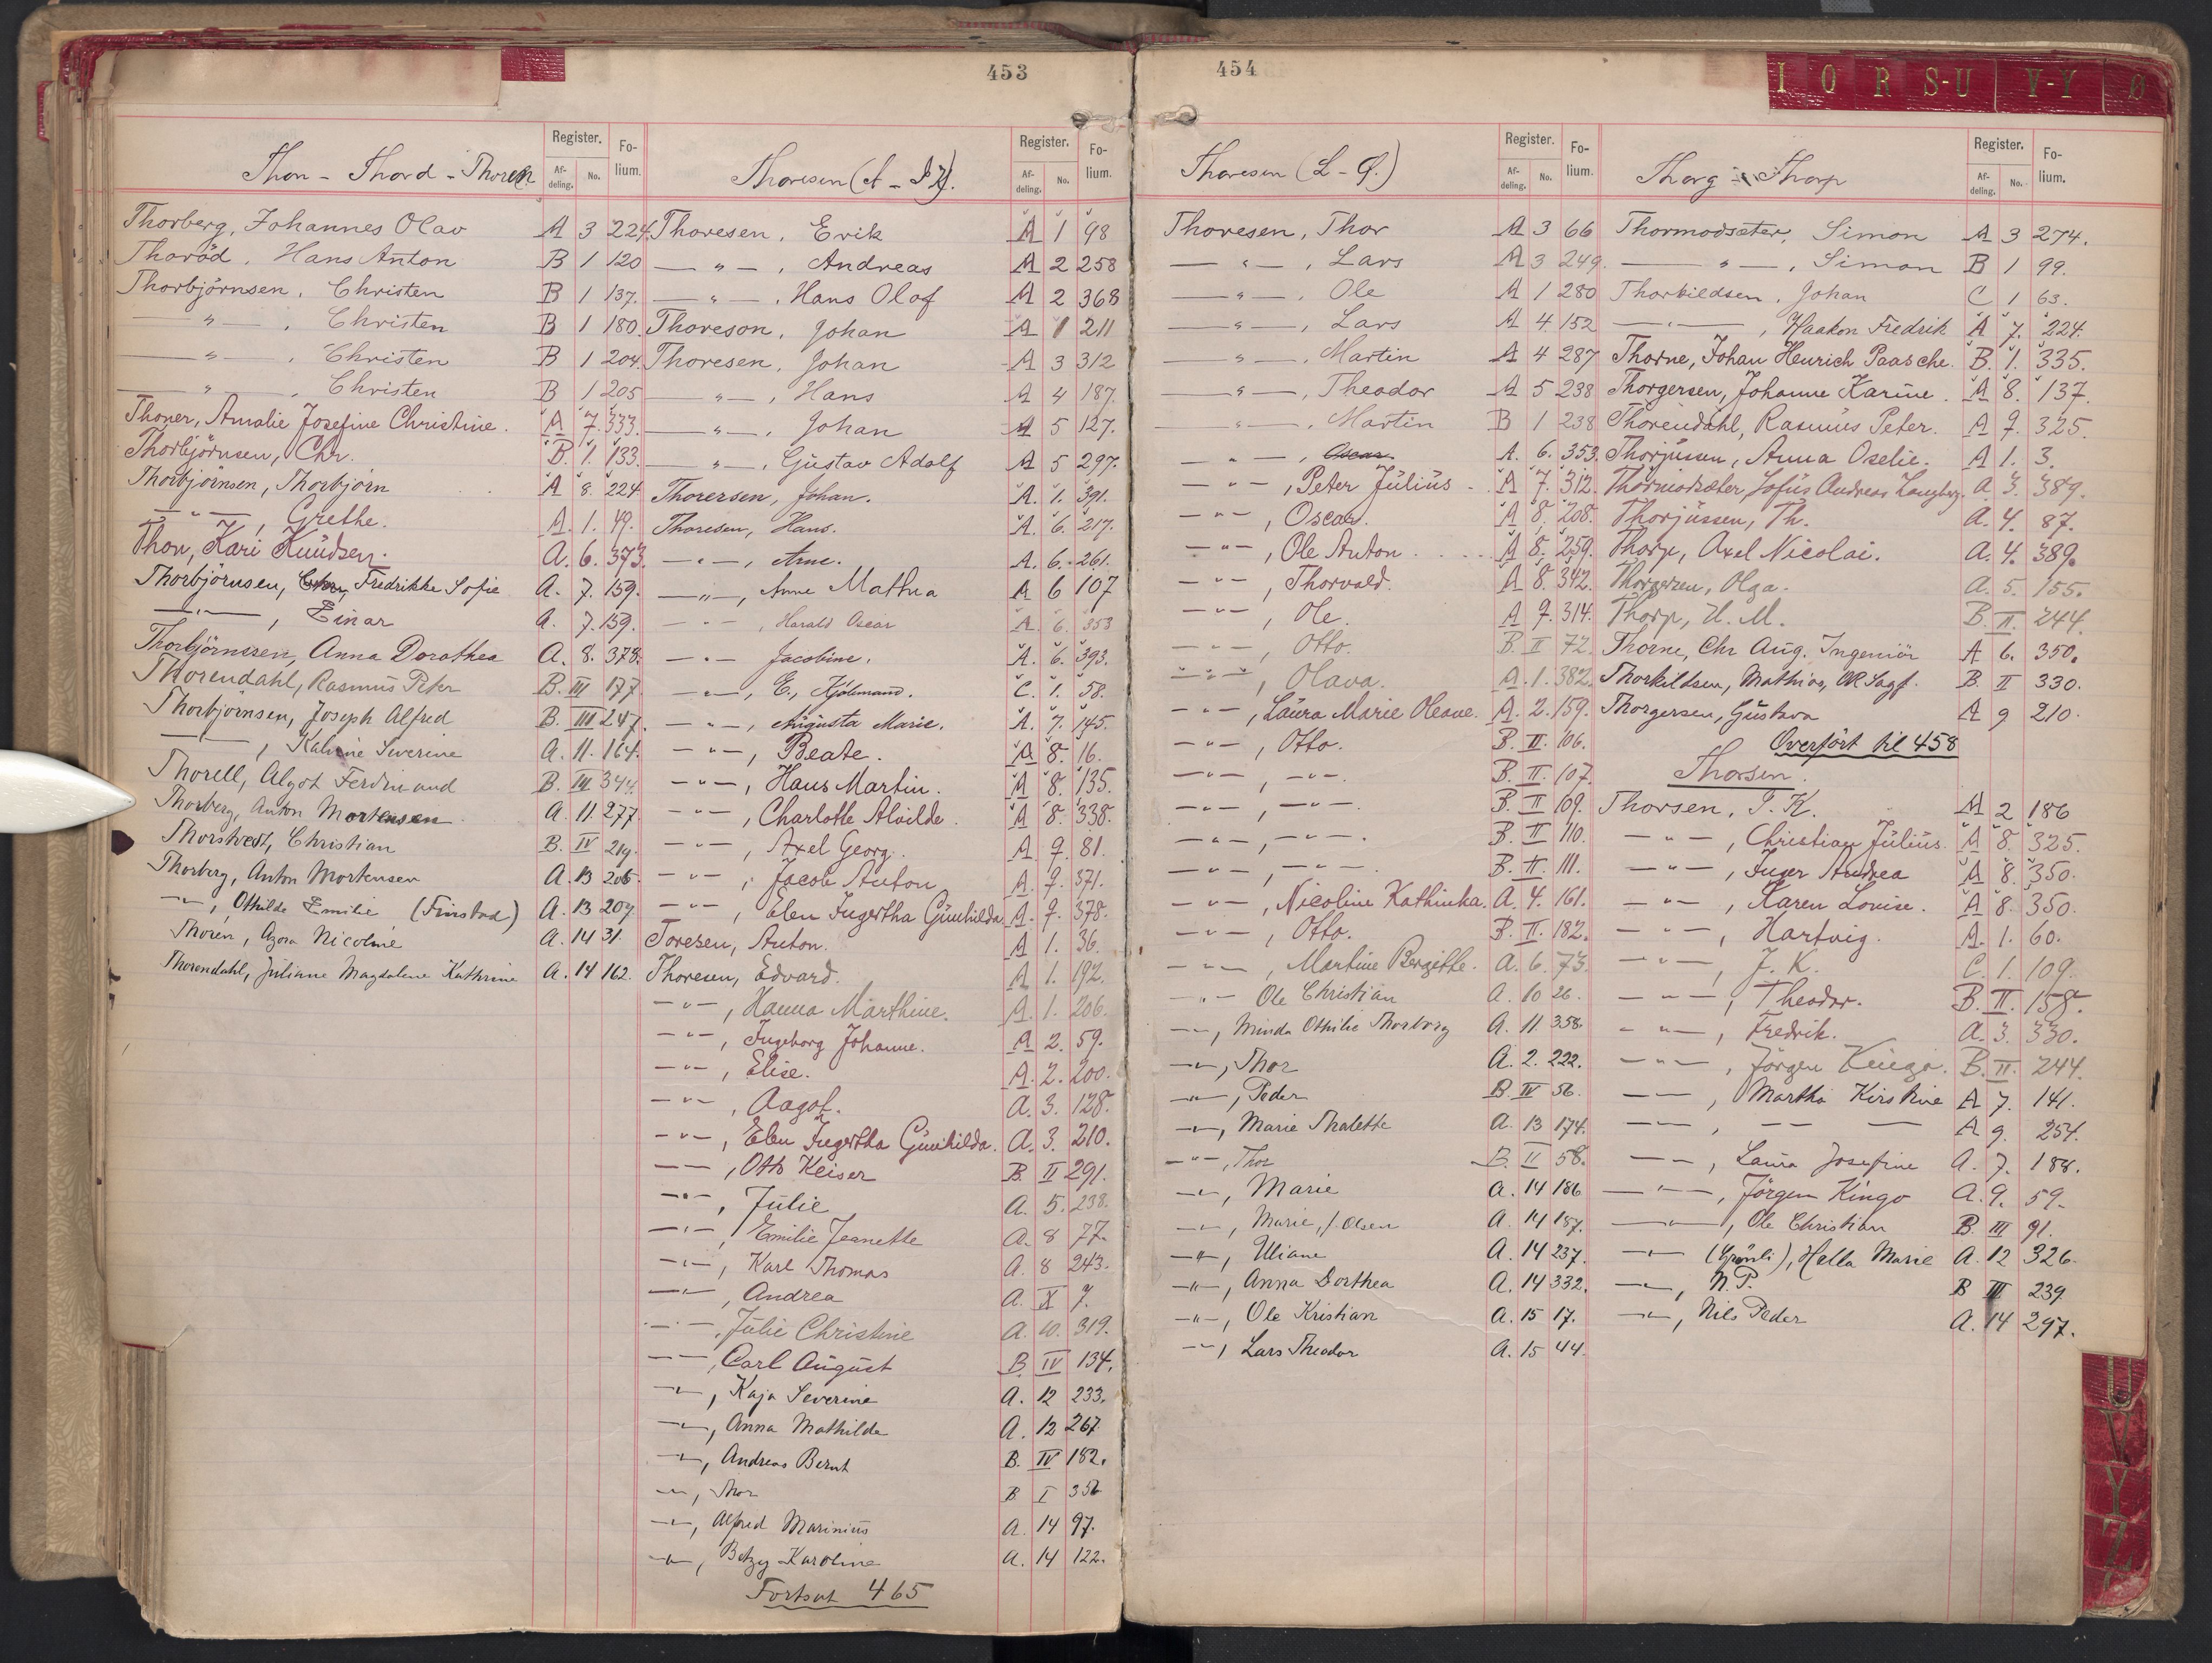 453
Register. Fo-
Af-
deling. No. lium.
Thon - Thord - Thoren
Thorberg, Johannes Olav A 3 224.
Thoröd, Hans Anton B 1 120
Thorbjörnsen, Christen B 1 137.
— " — , Christen B 1 180.
— " — , Christen B 1 204.
— " — , Christen B 1 205
Thoner, Amalie Josefine Christine. A 7. 333.
Thorbjörnsen, Chr. B. 1. 133.
Thorbjörnsen, Thorbjörn A 8. 224
— " — , Grethe. A. 1. 49.
Thon, Kari Knudsen. A. 6. 373.
Thorbjörnsen, Fredrikke Sofie A. 7. 159.
— " — , Einar A. 7. 159.
Thorbjörnssen, Anna Dorothea A. 8. 378.
Thorendahl, Rasmus Peter B. III 177.
Thorbjörnsen, Joseph Alfred B. III 247.
— — , Kathrine Severine A. 11. 164.
Thorell, Algot Ferdinand B. III 344.
Thorberg, Anton Mortensen A. 11. 277.
Thorstvedt, Christian B. IV 219.
Thorberg, Anton Mortensen A. 13 206.
— " —, Othilde Emilie (Finstad) A. 13 209
Thoren, Agora Nicoline A. 14 31.
Thorendahl, Juliane Magdalene Kathrine A. 14 162.
Register. Fo-
Af-
deling. No. lium.
Thoresen (A - K).
Thoresen, Erik A 1 98
— " — , Andreas A 2 258
— " — , Hans Olaf A 2 368
Thoreson, Johan A 1 211
Thoresen, Johan A 3 312
— " — , Hans A 4 187.
— " — , Johan A 5 127.
— " — , Gustav Adolf A 5 297.
Thorersen, Johan. A. 1. 391.
Thoresen, Hans. A. 6. 217.
— " — , Arne. A. 6. 261.
— " — , Anne Mathea A 6 107
— " — , Harald Oscar A. 6. 353
— " — Jacobine. A. 6. 393.
— " — , E., Kjølemand. C. 1. 58.
— " — , Augusta Marie. A. 7. 145.
— " — , Beate. A 8. 16.
— " — , Hans Martin. A 8. 135.
— " — , Charlotte Alvilde. A 8. 338.
— " — , Axel Georg. A. 9. 81.
— " — , Jacob Anton A. 9. 371.
— " — , Elen Ingertha Gunhilda A. 9. 378.
Toresen, Anton. A 1. 36.
Thoresen, Edvard. A 1. 192.
— " — , Hanna Marthine. A. 1. 206.
— " — , Ingeborg Johanne. A 2. 59.
— " — , Elise. A. 2. 200.
— " — , Aagot. A. 3. 128.
— " — , Elen Ingertha Gunhilda. A. 3. 210.
— — , Otto Keiser B. II 291.
— " — , Julie A. 5. 238.
— " — , Emilie Jeanette A. 8 77.
— " — , Karl Thomas A. 8 243.
— " — , Andrea A. X 7.
— " — , Julie Christine A. 10. 319.
— — , Carl August B. IV 134.
— " — , Kaja Severine A. 12 233.
— " — , Anna Mathilde A. 12 267
— " — , Andreas Bernt B. IV 182.
— " — , Thor B I 356
— " — , Alfred Marinius A. 14 97.
— " — , Betzy Karoline A. 14 122.
Fortsat 465
454
I Q R S-U V-Y Ø
Register. Fo-
Af-
deling. No. lium.
Thoresen (L - Ø.)
Thoresen, Thor A 3 66
— " — , Lars A 3 249.
— " — , Ole A 1 280
— " — , Lars A 4 152
— " — , Martin A 4 287
— " — , Theodor A 5 238
— " — , Martin B 1 238
— " — , Oscar. A. 6. 353.
— " — , Peter Julius A 7. 312.
— " — , Oscar. A 8. 208.
— " — , Ole Anton A 8. 259.
— " — , Thorvald. A 8. 342.
— " — , Ole. A 9. 314.
— " — , Otto. B. II 72.
— " — , Olava. A. 1. 382.
— " — , Laura Marie Oleane. A. 2. 159.
— " — , Otto. B. II. 106.
— " — , — " — . B. II. 107.
— " — , — " — . B. II 109.
— " — , — " — . B. II 110.
— " — , — " — . B. II. 111.
— " — , Nicoline Kathinka. A. 4. 161.
— " — , Otto. B. II. 182.
— " — , Martine Bergitte. A. 6. 73.
— " — Ole Christian A. 10 26.
— " — , Minda Othilie Thorborg A. 11 358.
— " — , Thor A. 2. 222.
— " — , Peder B. IV 56.
— " — , Marie Thalette A. 13 174.
— " — , Thor B. II 58.
— " — , Marie A. 14 186
— " — , Marie, f. Olsen A. 14 187.
— " — , Uliane A. 14 237.
— " — , Anna Dorthea A. 14 332.
— " — , Ole Kristian A. 15 17.
— " — , Lars Theodor A. 15 44.
Register. Fo-
Af-
deling. No. lium.
Thorg - Thorp
Thormodsæter, Simon A 3 274.
— " — , Simon B 1 99.
Thorkildsen, Johan C 1 63.
— " — , Haakon Fredrik A 7. 224.
Thorne, Johan Henrich Paasche. B. 1. 335.
Thorgersen, Johanne Karine. A 8. 137.
Thorendahl, Rasmus Peter. A 9. 325.
Thorjussen, Anna Oselie. A 1. 3.
Thormodsæter, Jofus Andreas Langberg. A 3. 389.
Thorjussen, Th. A. 4. 87.
Thorp, Axel Nicolai. A. 4. 389.
Thorgersen, Olga. A. 5. 155.
Thorp, U. M. B. II. 244.
Thorne, Chr Aug. Ingeniör A 6. 350.
Thorkildsen, Mathias, OR Sagf. B. II 330.
Thorgersen, Gustava A 9 210.
Overført til 458
Thorsen.
Thorsen, P. K. A 2 186
— " — , Christian Julius. A 8. 325.
— " — , Inger Andrea A 8. 350.
— " — , Karen Lovise. A 8. 350.
— " — , Hartvig. A. 1. 60.
— " — , J. K. C. 1. 109.
— " — , Theodor. B. II. 158.
— " — , Fredrik. A. 3. 330.
— " — , Jörgen Kingo. B. II. 244.
— — , Martha Kirstine A 7. 141.
— — , — — — A 9. 254.
— — , Laura Josefine A. 7. 188.
— " — , Jörgen Kingo A. 9. 59.
— " — , Ole Christian B. III 91.
— " — (Grönli), Hella Marie A. 12 326.
— " — , N. P. B III 239
— " — , Nils Peder A. 14 297.
U V Y Z